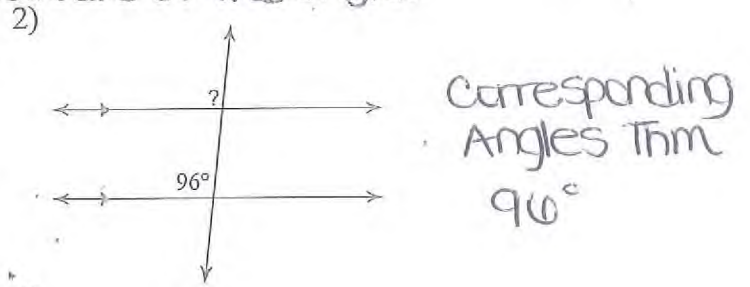 2)
?
96°
Corresponding
Angles Thm
96°